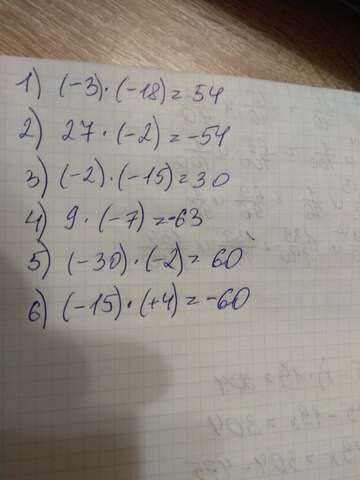 1) (-3)·(-18)=54
2) 27·(-2)=-54
3) (-2)·(-15)=30
4) 9·(-7)=-63
5) (-30)·(-2)=60
6) (-15)·(+4)=-60